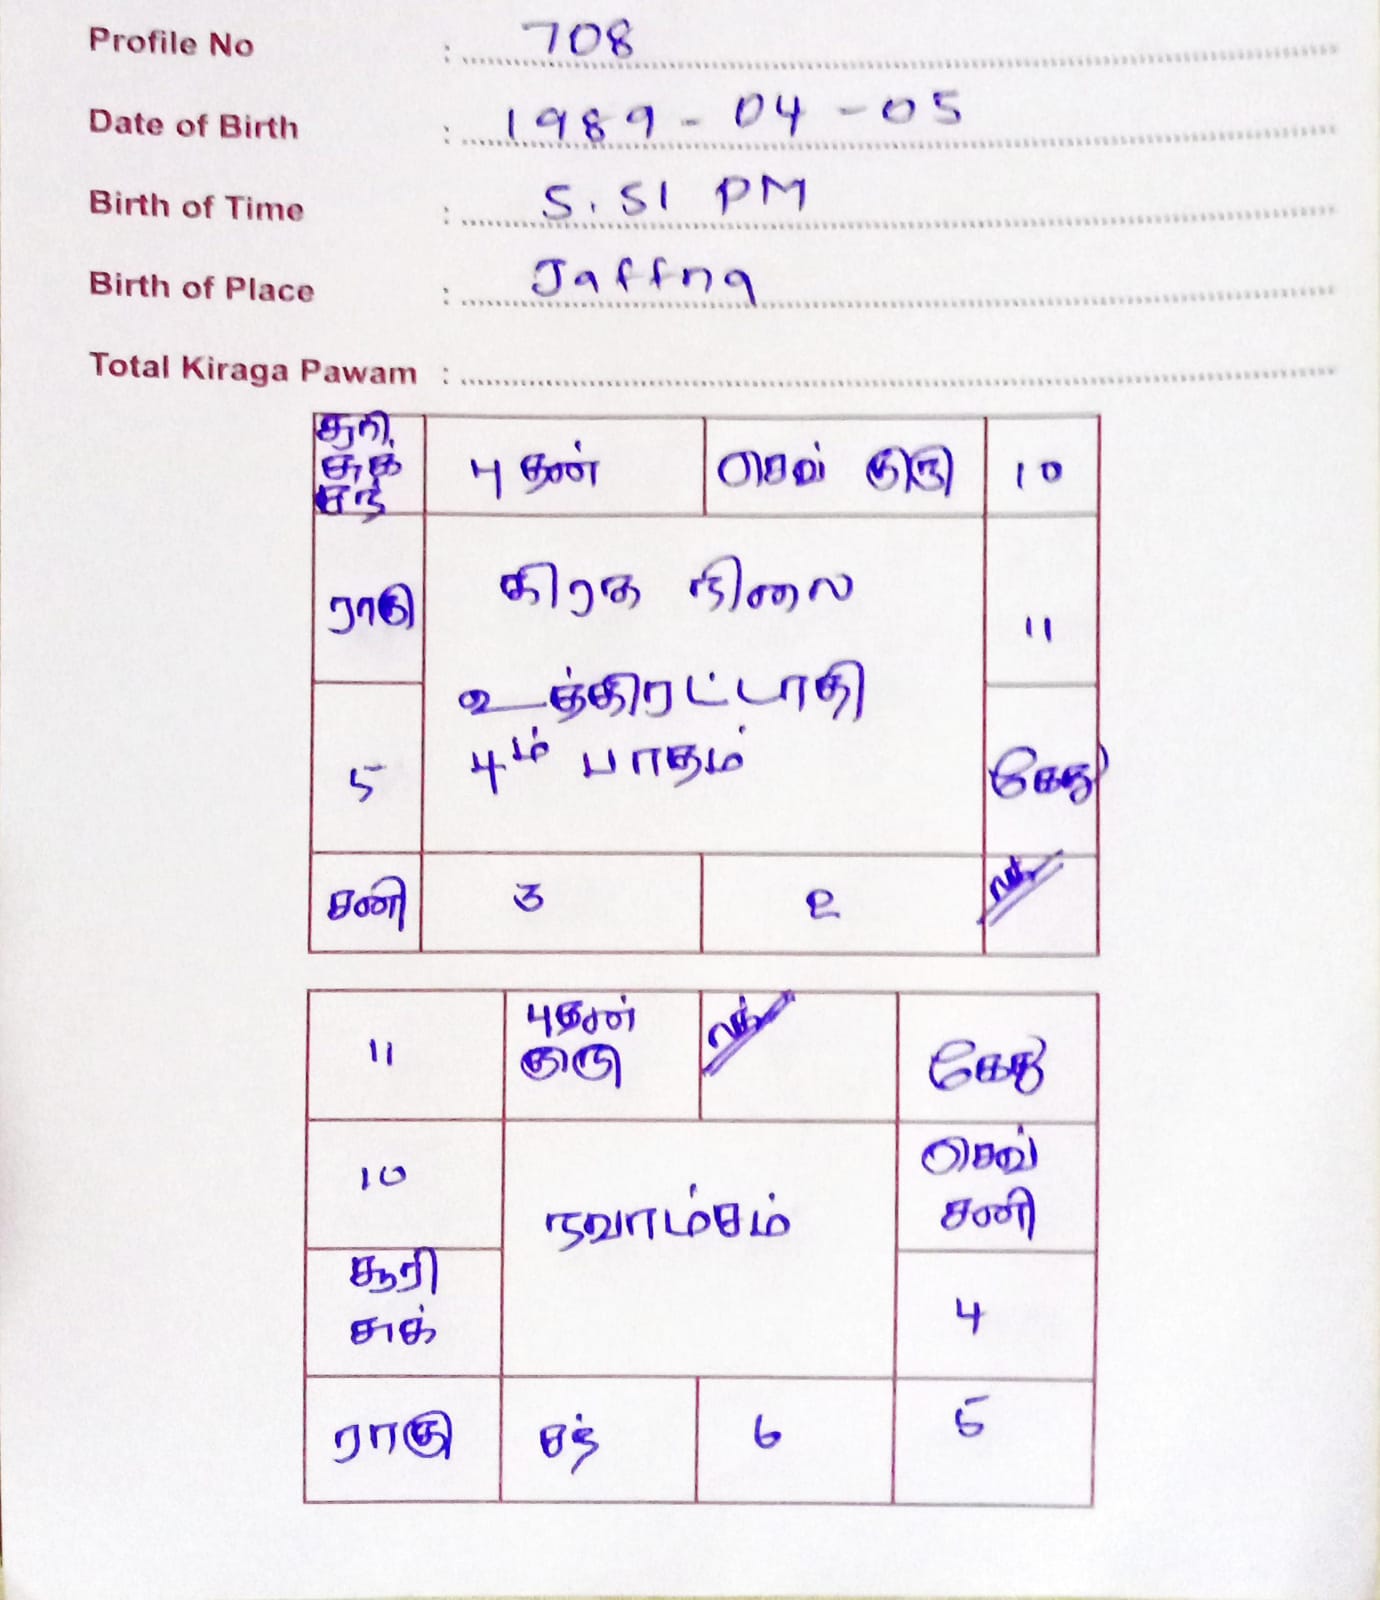 Profile No : 708
Date of Birth : 1989-04-05
Birth of Time : 5.51 PM
Birth of Place : Jaffna
Total Kiraga Pawam :
சூரி
சுக்
சந்
புதன்
செவ் குரு
10
ராகு
கிரக நிலை
11
உத்திரட்டாதி
5
4ம் பாதம்
கேது
சனி
3
2
லக்
11
புதன்
குரு
லக்
கேது
10
நவாம்சம்
செவ்
சனி
சூரி
சுக்
4
ராகு
சந்
6
5